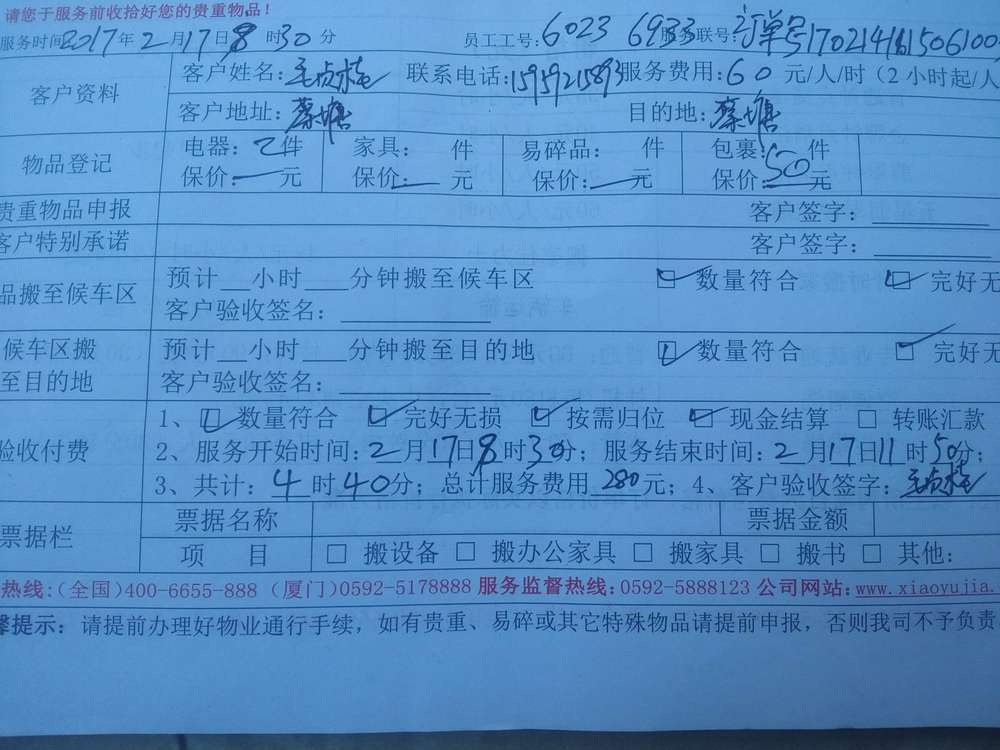 请您于服务前收拾好您的贵重物品!
服务时间2017年2月17日8时30分 员工工号:6023 6933服务联号:订单号
客户资料
客户姓名: 联系电话: 服务费用:60元/人/时(2小时起/人
客户地址:蔡塘 目的地:蔡塘
物品登记
电器:2件 家具: 件 易碎品: 件 包裹:50件
保价:—元 保价:—元 保价:—元 保价:—元
贵重物品申报 客户签字:
客户特别承诺 客户签字:
品搬至候车区
预计__小时___分钟搬至候车区 ☑数量符合 ☑完好无
客户验收签名:
候车区搬
至目的地
预计__小时___分钟搬至目的地 ☑数量符合 ☑完好无
客户验收签名:
验收付费
1、☑数量符合 ☑完好无损 ☑按需归位 ☑现金结算 □转账汇款
2、服务开始时间:2月17日8时30分;服务结束时间:2月17日11时50分;
3、共计:4时40分;总计服务费用280元;4、客户验收签字:
票据栏
票据名称 票据金额
项 目 □搬设备 □搬办公家具 □搬家具 □搬书 □其他:
热线:(全国)400-6655-888 (厦门)0592-5178888 服务监督热线:0592-5888123 公司网站:www.xiaoyujia.
馨提示:请提前办理好物业通行手续,如有贵重、易碎或其它特殊物品请提前申报,否则我司不予负责